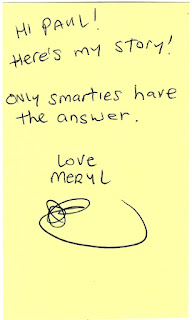 HI PAUL!
Here's my story!
ONLY smarties have
the answer.
Love
MERYL